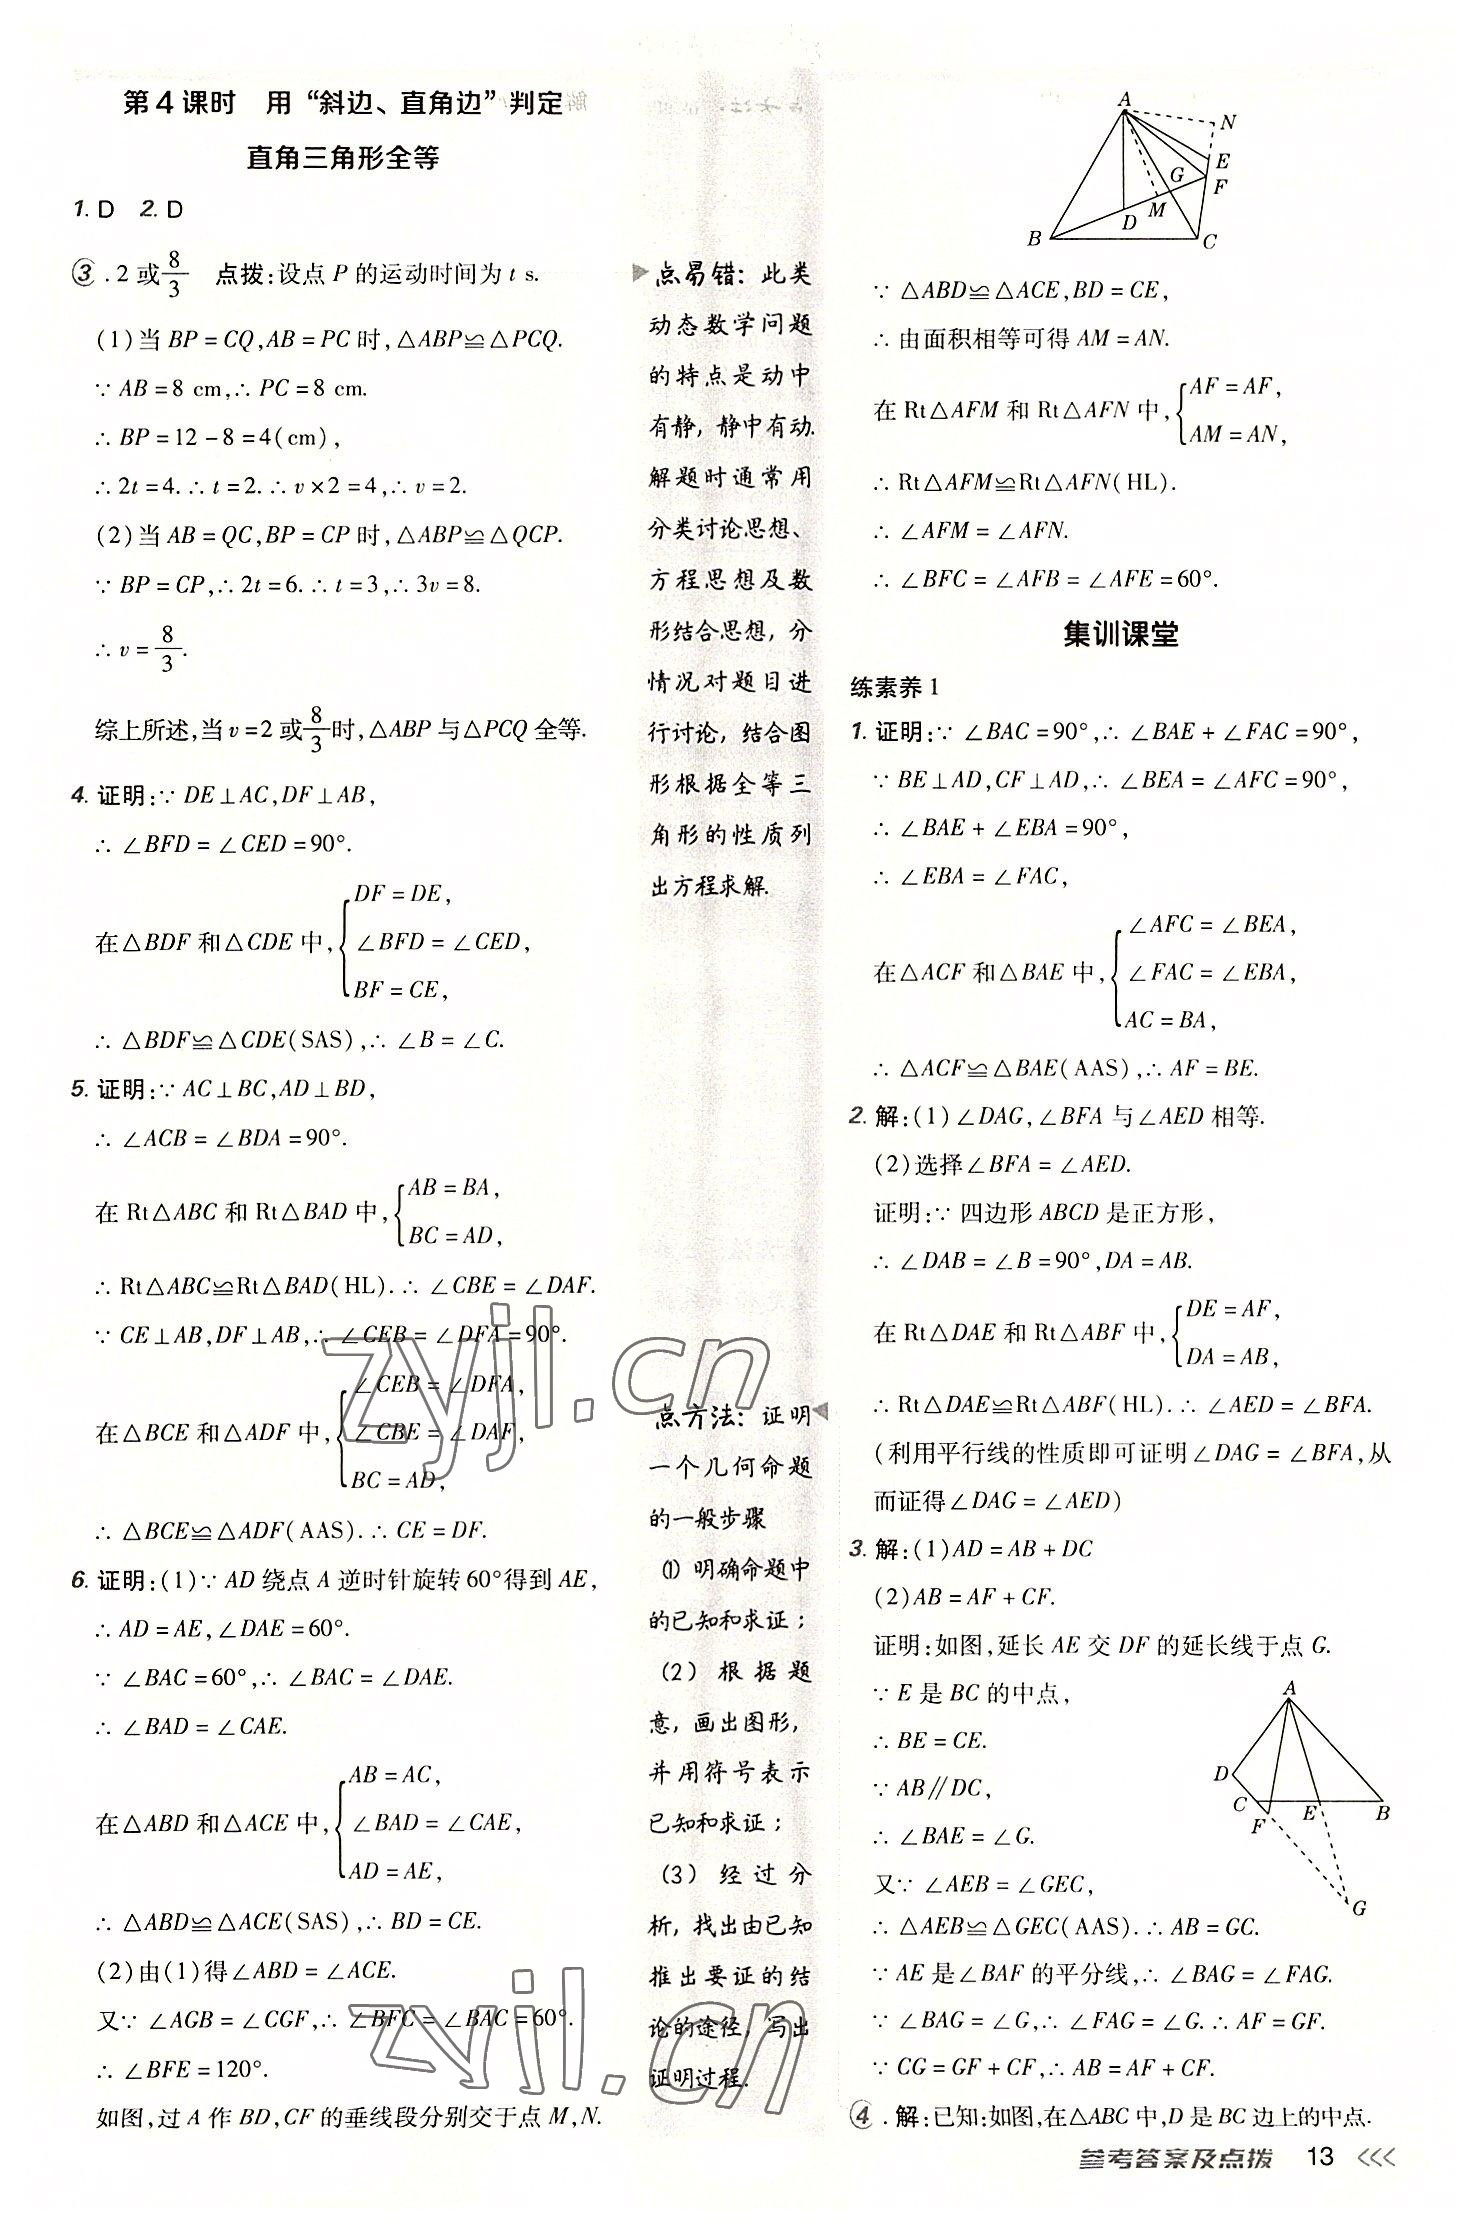 第4课时 用“斜边、直角边”判定
直角三角形全等
1. D 2. D
③. 2或8/3 点拨:设点P的运动时间为t s.
(1)当BP=CQ,AB=PC时,△ABP≌△PCQ.
∵AB=8 cm,∴PC=8 cm.
∴BP=12-8=4(cm),
∴2t=4.∴t=2.∴v×2=4,∴v=2.
(2)当AB=QC,BP=CP时,△ABP≌△QCP.
∵BP=CP,∴2t=6.∴t=3,∴3v=8.
∴v=8/3.
综上所述,当v=2或8/3时,△ABP与△PCQ全等.
4. 证明:∵DE⊥AC,DF⊥AB,
∴∠BFD=∠CED=90°.
DF=DE,
在△BDF和△CDE中,{∠BFD=∠CED,
BF=CE,
∴△BDF≌△CDE(SAS),∴∠B=∠C.
5. 证明:∵AC⊥BC,AD⊥BD,
∴∠ACB=∠BDA=90°.
在Rt△ABC和Rt△BAD中,{AB=BA,
BC=AD,
∴Rt△ABC≌Rt△BAD(HL).∴∠CBE=∠DAF.
∵CE⊥AB,DF⊥AB,∴∠CEB=∠DFA=90°.
∠CEB=∠DFA,
在△BCE和△ADF中,{∠CBE=∠DAF,
BC=AD,
∴△BCE≌△ADF(AAS).∴CE=DF.
6. 证明:(1)∵AD绕点A逆时针旋转60°得到AE,
∴AD=AE,∠DAE=60°.
∵∠BAC=60°,∴∠BAC=∠DAE.
∴∠BAD=∠CAE.
AB=AC,
在△ABD和△ACE中,{∠BAD=∠CAE,
AD=AE,
∴△ABD≌△ACE(SAS),∴BD=CE.
(2)由(1)得∠ABD=∠ACE.
又∵∠AGB=∠CGF,∴∠BFC=∠BAC=60°.
∴∠BFE=120°.
如图,过A作BD,CF的垂线段分别交于点M,N.
点易错:此类
动态数学问题
的特点是动中
有静,静中有动.
解题时通常用
分类讨论思想、
方程思想及数
形结合思想,分
情况对题目进
行讨论,结合图
形根据全等三
角形的性质列
出方程求解.
点方法:证明
一个几何命题
的一般步骤
(1)明确命题中
的已知和求证;
(2)根据题
意,画出图形,
并用符号表示
已知和求证;
(3)经过分
析,找出由已知
推出要证的结
论的途径,写出
证明过程.
A
N
E
G
F
M
D
B
C
∵△ABD≌△ACE,BD=CE,
∴由面积相等可得AM=AN.
在Rt△AFM和Rt△AFN中,{AF=AF,
AM=AN,
∴Rt△AFM≌Rt△AFN(HL).
∴∠AFM=∠AFN.
∴∠BFC=∠AFB=∠AFE=60°.
集训课堂
练素养1
1. 证明:∵∠BAC=90°,∴∠BAE+∠FAC=90°,
∵BE⊥AD,CF⊥AD,∴∠BEA=∠AFC=90°,
∴∠BAE+∠EBA=90°,
∴∠EBA=∠FAC,
∠AFC=∠BEA,
在△ACF和△BAE中,{∠FAC=∠EBA,
AC=BA,
∴△ACF≌△BAE(AAS),∴AF=BE.
2. 解:(1)∠DAG,∠BFA与∠AED相等.
(2)选择∠BFA=∠AED.
证明:∵四边形ABCD是正方形,
∴∠DAB=∠B=90°,DA=AB.
在Rt△DAE和Rt△ABF中,{DE=AF,
DA=AB,
∴Rt△DAE≌Rt△ABF(HL).∴∠AED=∠BFA.
(利用平行线的性质即可证明∠DAG=∠BFA,从
而证得∠DAG=∠AED)
3. 解:(1)AD=AB+DC
(2)AB=AF+CF.
证明:如图,延长AE交DF的延长线于点G.
∵E是BC的中点,
∴BE=CE.
∵AB∥DC,
∴∠BAE=∠G.
又∵∠AEB=∠GEC,
∴△AEB≌△GEC(AAS).∴AB=GC.
∵AE是∠BAF的平分线,∴∠BAG=∠FAG.
∵∠BAG=∠G,∴∠FAG=∠G.∴AF=GF.
∵CG=GF+CF,∴AB=AF+CF.
④. 解:已知:如图,在△ABC中,D是BC边上的中点.
A
D
C
F
E
B
G
zyjl.cn
zyjl.cn
参考答案及点拨 13